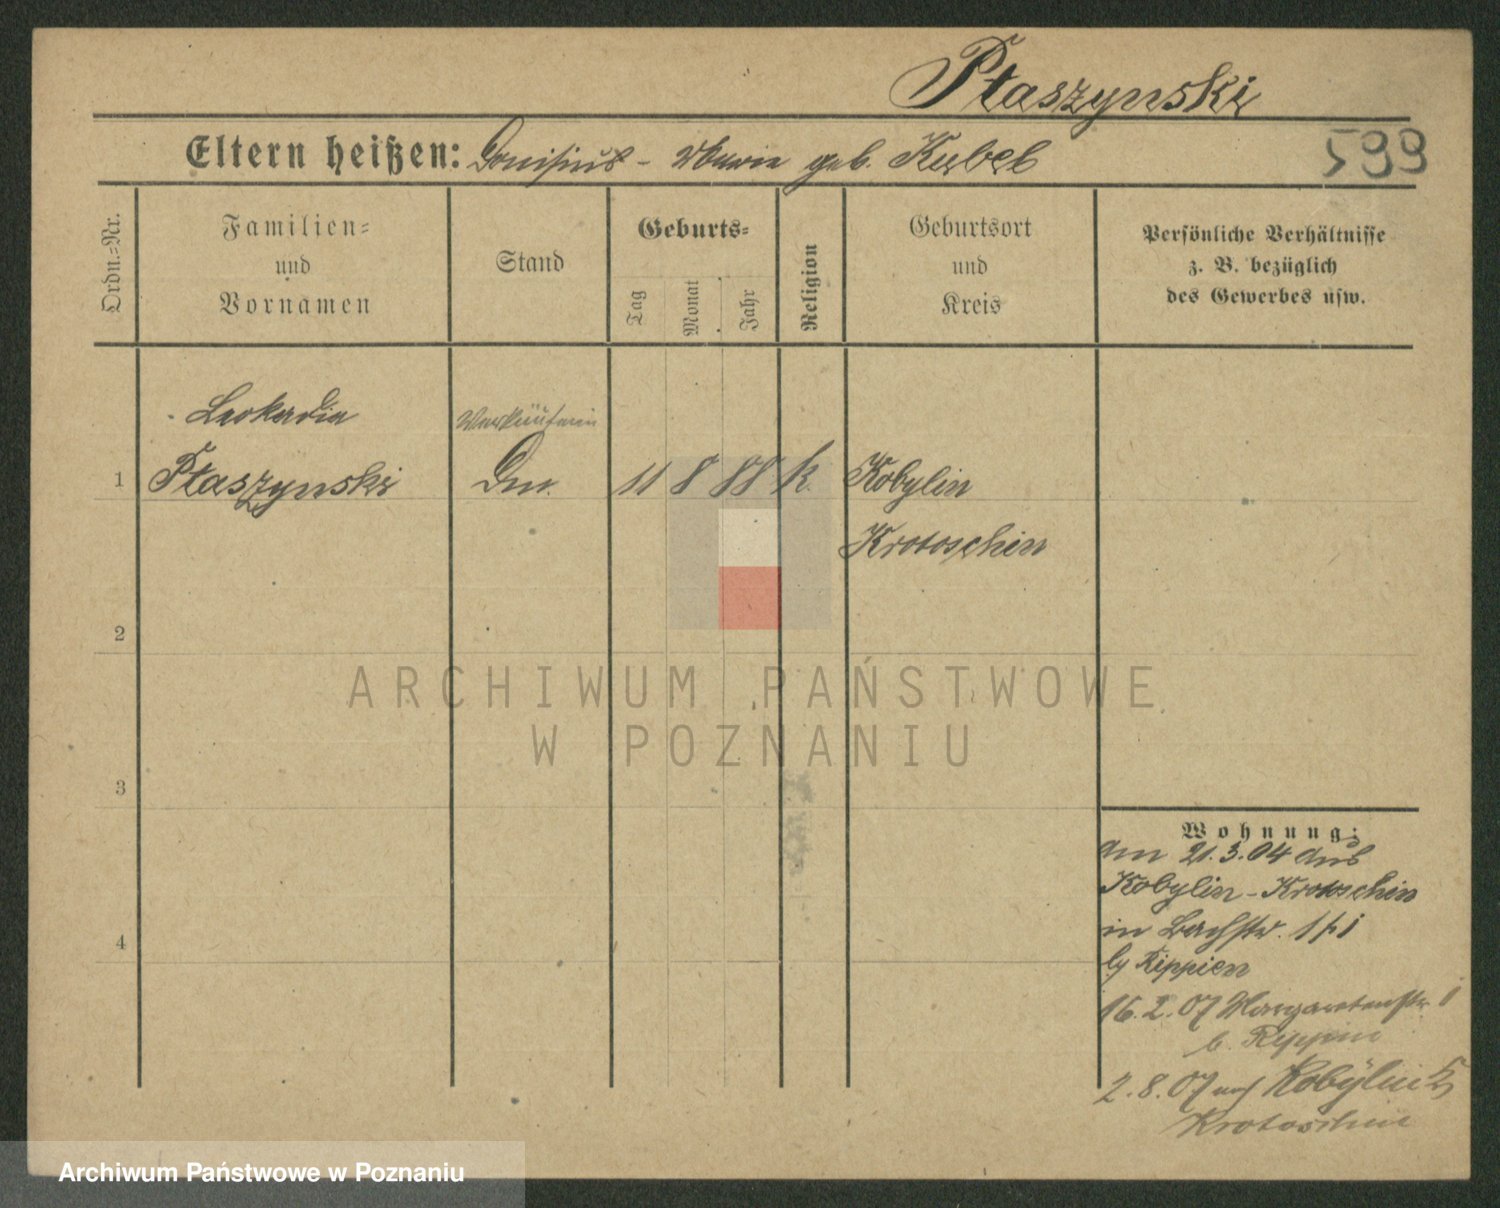 Ptaszynski
Eltern heißen: Donisius - Marie geb. Kubel
599
Ordn.=Nr.
Familien=
und
Vornamen
Stand
Geburts=
Tag
Monat
Jahr
Religion
Geburtsort
und
Kreis
Persönliche Verhältnisse
z. B. bezüglich
des Gewerbes usw.
Leokadia
Verkäuferin
1 Ptaszynski Dm. 11 8 88 k. Kobylin
Krotoschin
2
3
4
Wohnung:
am 21.3.04 aus
Kobylin - Krotoschin
in Bachstr. 1
by Rippien
16.2.07 Margaretenstr. 1
b. Rippin
2.8.07 nach Kobylin
Krotoschin
ARCHIWUM PAŃSTWOWE
W POZNANIU
Archiwum Państwowe w Poznaniu